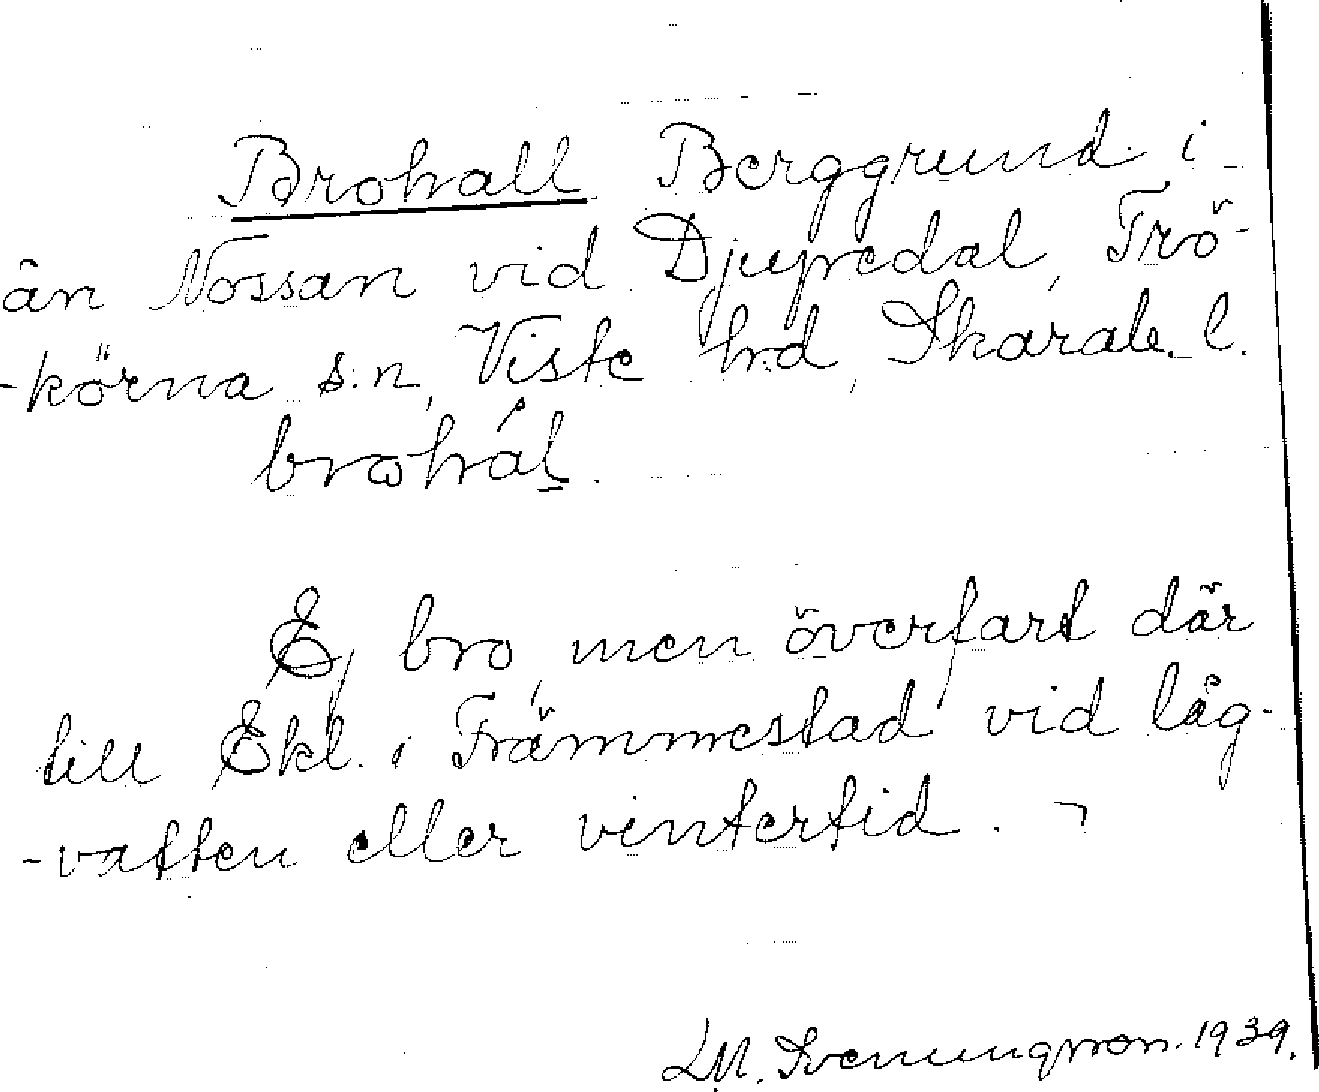 Brohall Berggrund i
ån Nossan vid Djupedal, Frö-
-körna s:n, Viste hd, Skarab. l.
brohál.
Ej bro, men överfart där
till Ekl. i Främmestad vid låg-
-vatten eller vintertid. ¬
LM. Svenungsson. 1939.